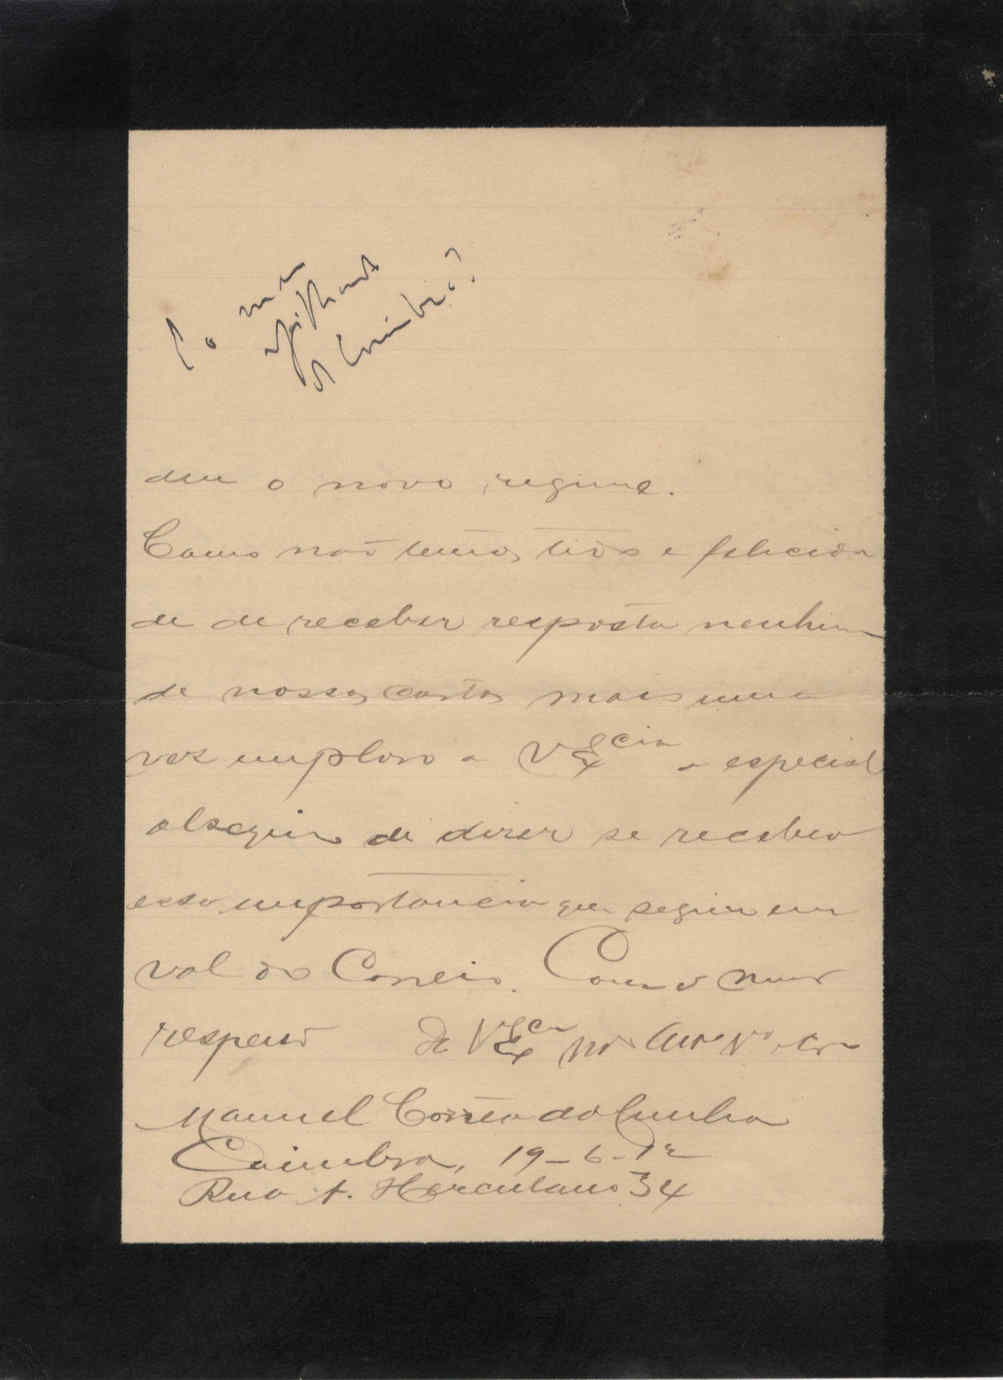 de Coimbra?
deu o novo regime.
Como não temos tido a felicida
de de receber resposta nenhuma
de nossas cartas mais uma
vez imploro a V Ex.cia o especial
obsequio de dizer se recebeu
essa importancia que seguiu em
val do Correio. Com o maior
respeito De V Ex.cia
Manuel Corrêa da Cunha
Coimbra, 19-6-12
Rua A. Herculano 34